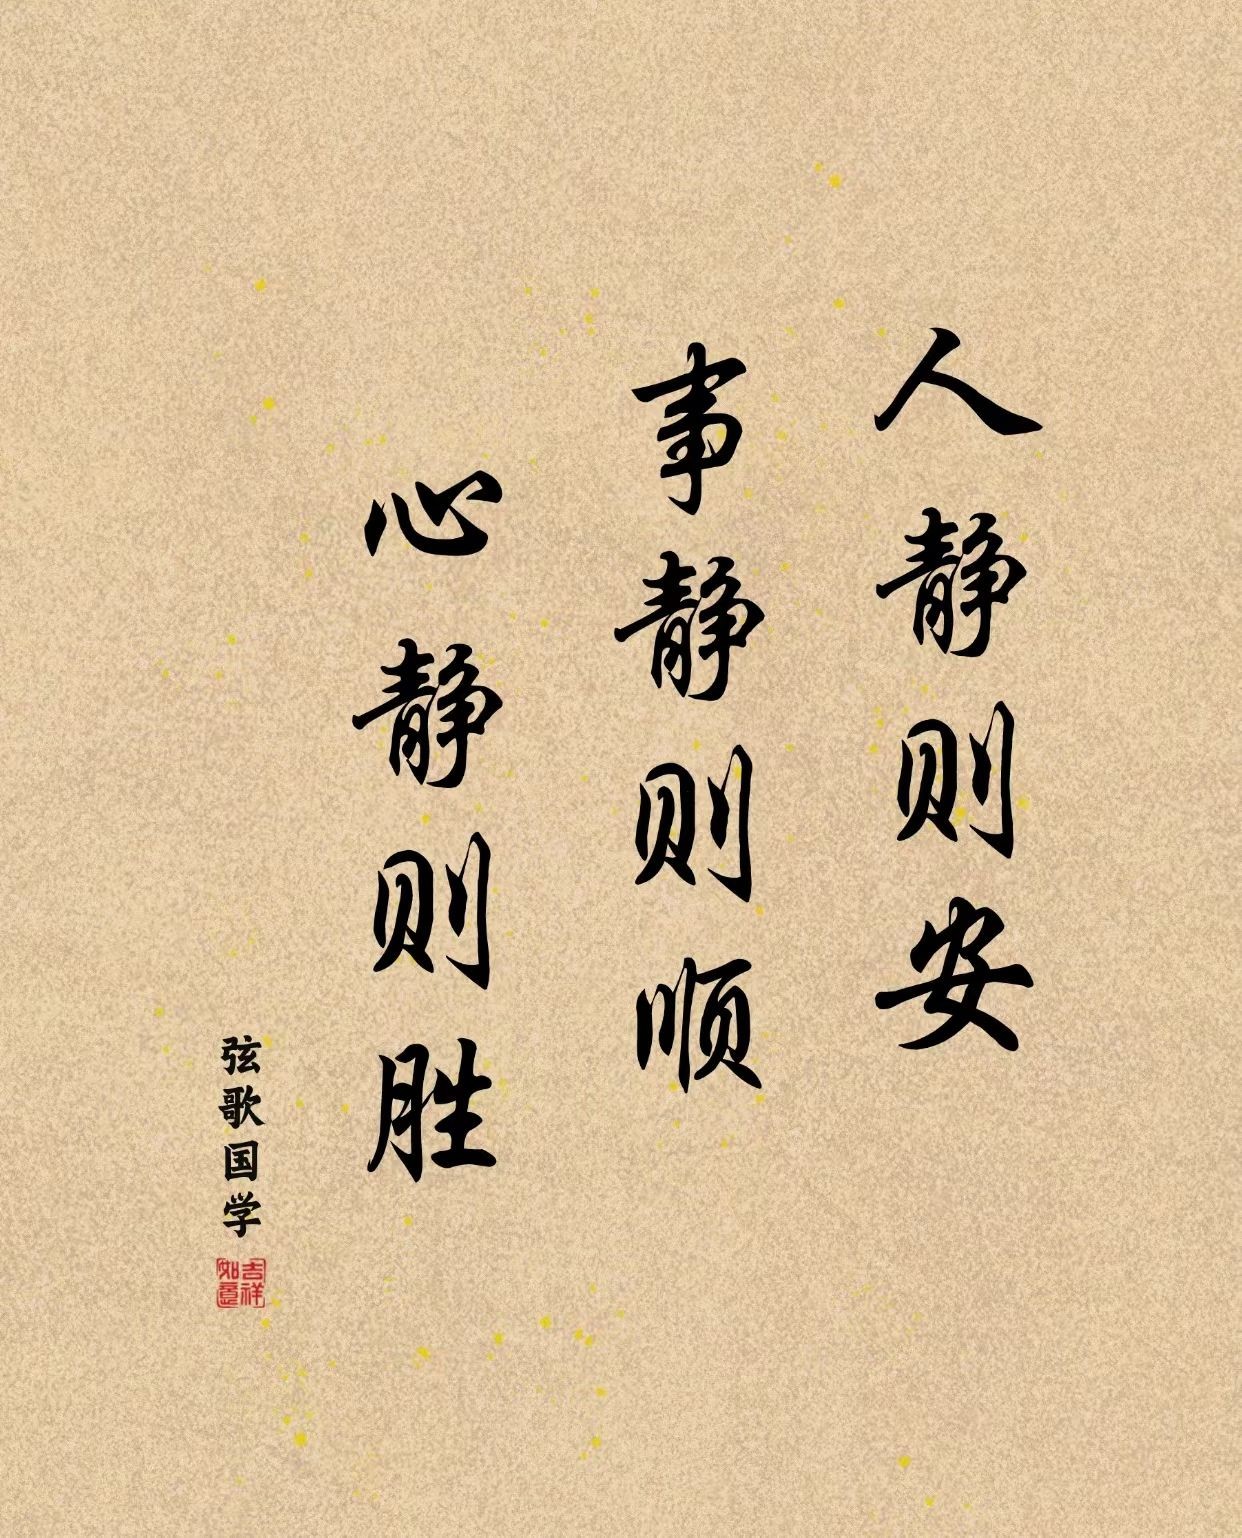 人静则安
事静则顺
心静则胜
弦歌国学
吉祥如意